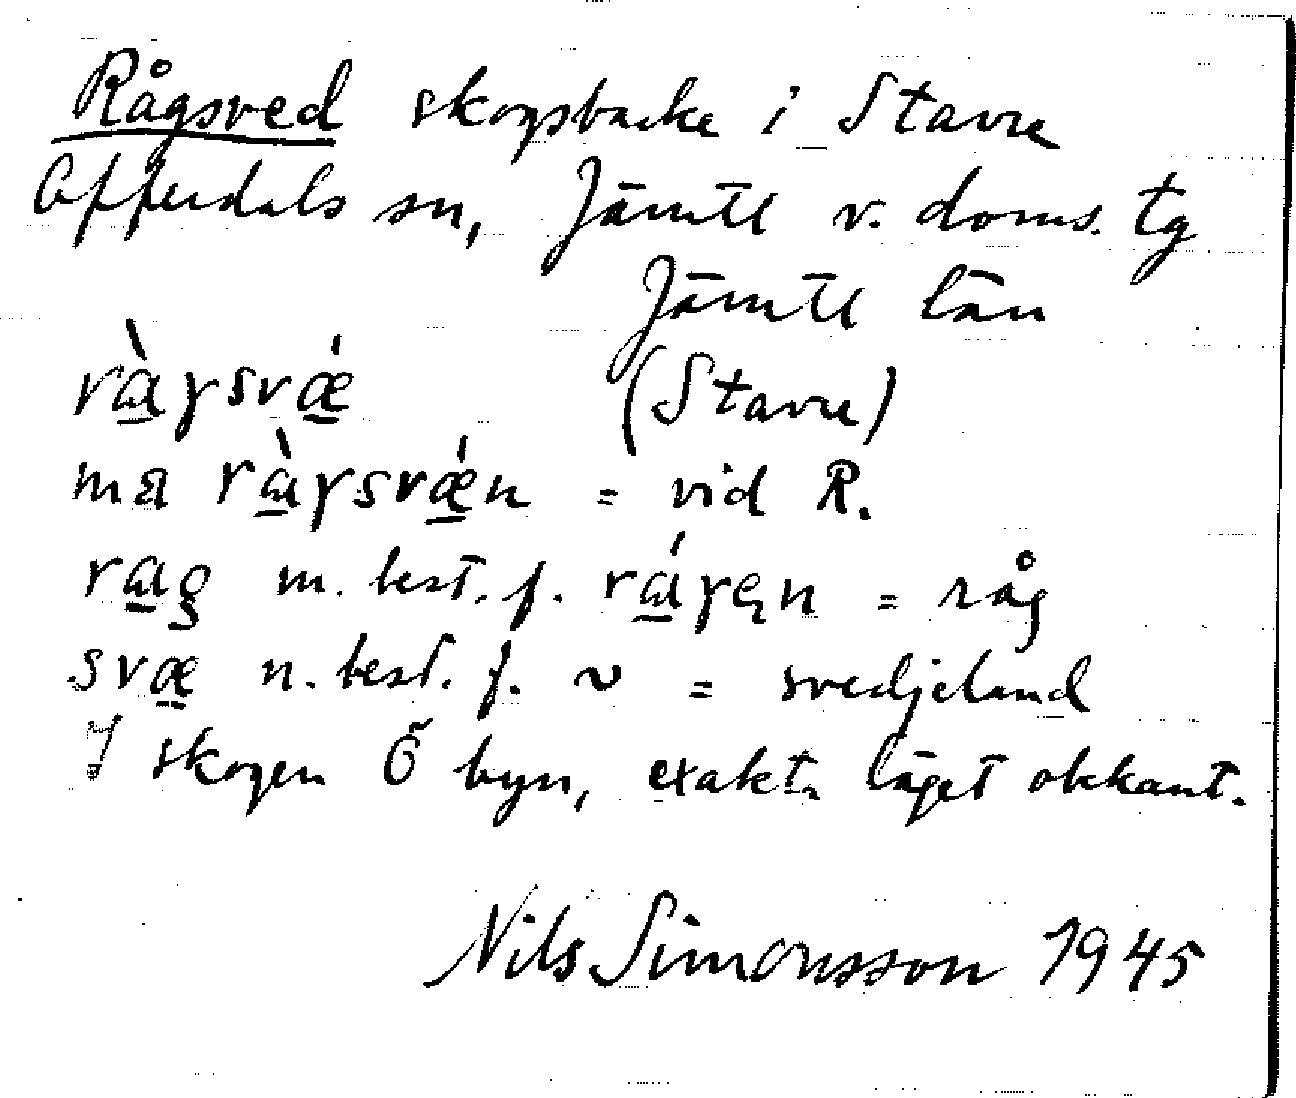 Rågsved skogsbacke i Stavre
Offerdals sn, Jämtl v. doms. tg
Jämtl län
ràɣsvǽ (Stavre)
ma ràɣsvǽn = vid R.
rag m. best. f. ráɣęn = råg
svæ n. best. f. ~ = svedjeland
I skogen Ö byn, exakt. läget okkänt.
Nils Simonsson 1945